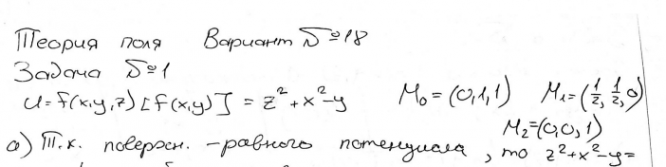 Теория поля Вариант №18
Задача №1
U=f(x,y,z) [f(x,y)] = z²+x²-y M₀=(0,1,1) M₁=(1/2, 1/2, 0)
M₂=(0,0,1)
а) Т.к. поверхн. -равного потенциала, то z²+x²-y=